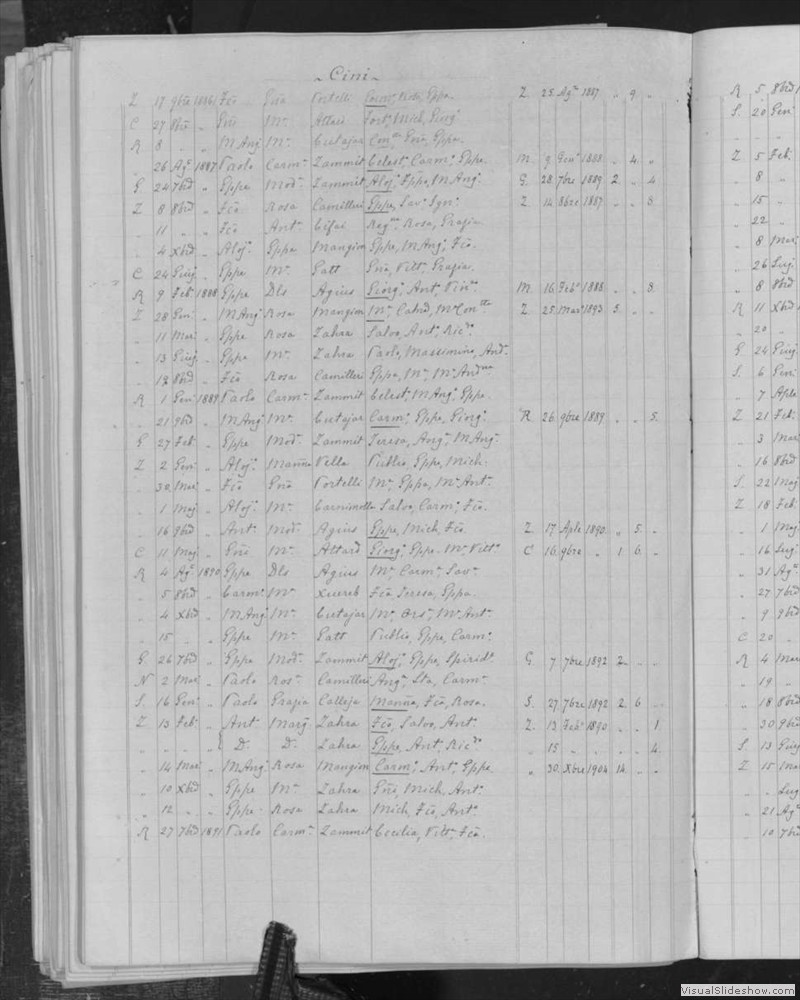 Cini
Z 17 9bre 1886 Fcõ Enã Portelli Carm, Rob, Eppa Z 25 Agº 1887 " 9 "
C 27 8bre " Enõ Mª Attard Fort, Mich, Giorgº
R 8 " " M Angº Mª Cutajar Conᵗᵃ Enã, Eppa
" 26 Agº 1887 Paolo Carmª Zammit Celestª Carmª Eppe M. 9 Genº 1888 " 4 "
G 24 7bre " Eppe Modª Zammit Alojº, Eppe, M Angº G. 28 7bre 1889 2 " 4
Z 8 8bre " Fcõ Rosa Camilleri Eppe, Savº Ignº Z 14 8bre 1887 " " 8
" 11 " " Fcõ Antª Rosa, Grazia
" 4 Xbre " Alojº Eppa Mangion Eppe, M Angº, Fcõ
C 24 Giug " Eppe Mª Gatt Enã, Vittª Grazia
R 9 Febº 1888 Eppe Dls Agius Giorgº, Antº, Vincº M 16 Febº 1888 " " 8
Z 28 Genº " M Angº Rosa Mangion Mª Calcd, M Conᵗᵃ Z 25 Marº 1893 5 " "
" 11 Marº " Eppe Rosa Zahra Salvo, Antº, Ricº
" 13 Giug " Eppe Mª Zahra Paolo, Massimino, Andº
" 13 8bre " Fcõ Rosa Camilleri Eppa, Mª
R 1 Genº 1889 Paolo Carmª Zammit Celestª M Angª Eppe
" 21 9bre " M Angº Mª Cutajar Carmº, Eppe, Giorgº R 26 9bre 1889 " " 5
G 27 Febº " Eppe Modª Zammit Teresa, Angª, M Angª
Z 2 Genº " Alojº Mannã Vella Publio, Eppe, Mich
" 30 Marº " Fcõ Enã Portelli Mª Eppa, M Antª
" 1 Magº " Alojº Mª Salvo, Carmº, Fcõ
" 16 9bre " Antº Modª Agius Eppe, Mich, Fcõ Z 17 Aple 1890 " 5 "
C 11 Magº " Enõ Mª Attard Giorgª, Eppa, M Vittª C 16 9bre " 1 6 "
R 4 Agº 1890 Eppe Dls Agius Mª Carmª, Savª
" 5 8bre " Carmº Mª Xuereb Fcã, Teresa, Eppa
" 4 Xbre " M Angº Mª Cutajar Mª Orsª, M Antª
" 15 " " Eppe Mª Gatt Publio, Eppe, Carmº
G 26 7bre " Eppe Modª Zammit Alojº, Eppe, Spiridº G 7 7bre 1892 2 " "
N 2 Marº " Paolo Rosª Camilleri Angª, Sta, Carmª
S 16 Genº " Paolo Grazia Calleja Mannã, Fcã, Rosa S 27 7bre 1892 2 6 "
Z 13 Febº " Antº Margª Zahra Fcõ, Salvo, Antº Z 13 Febº 1890 " " 1
" " " " D. D. Zahra Eppe, Antº, Ricº " 15 " " " " 4
" 14 Marº " M Angº Rosa Mangion Carmº, Antº, Eppe " 30 Xbre 1904 14 " "
" 10 Xbre " Eppe Mª Zahra Enõ, Mich, Antº
" 12 " " Eppe Rosa Zahra Mich, Fcõ, Antº
R 27 7bre 1891 Paolo Carmª Zammit Cecilia, Vittª, Fcã
R 5 8bre
S 20 Genº
Z 5 Febº
" 8 "
" 15 "
" 22 "
" 8 Marº
" 26 Lug
" 8 8bre
R 11 Xbre
" 20 "
G 24 Giug
S 6 Genº
" 7 Aple
Z 21 Febº
" 3 Marº
" 16 8bre
S 22 Magº
Z 18 Febº
" 1 Magº
" 16 Lug
" 31 Agº
" 27 7bre
" 9 9bre
C 20 "
R 4 Marº
" 19 "
" 18 8bre
" 30 9bre
S 13 Giug
Z 15 Marº
" " Lug
" 21 Agº
" 10 7bre
VisualSlideshow.com